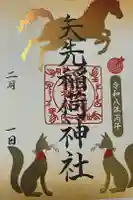 矢先稲荷神社
令和八年丙午
二月
一日